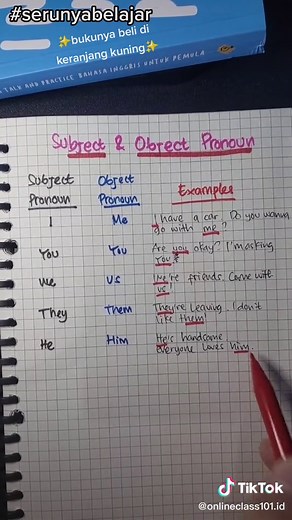 #serunyabelajar
✨bukunya beli di
keranjang kuning✨
TALK AND PRACTICE BAHASA INGGRIS UNTUK PEMULA
Subject & Object Pronoun
Subject Pronoun
Object Pronoun
Examples
I
Me
I have a car. Do you wanna
go with me?
You
You
Are you okay? I'm asking
you!
We
Us
We're friends. Come with
us!
They
Them
They're leaving. I don't
like them!
He
Him
He's handsome
everyone loves him.
TikTok
@onlineclass101.id